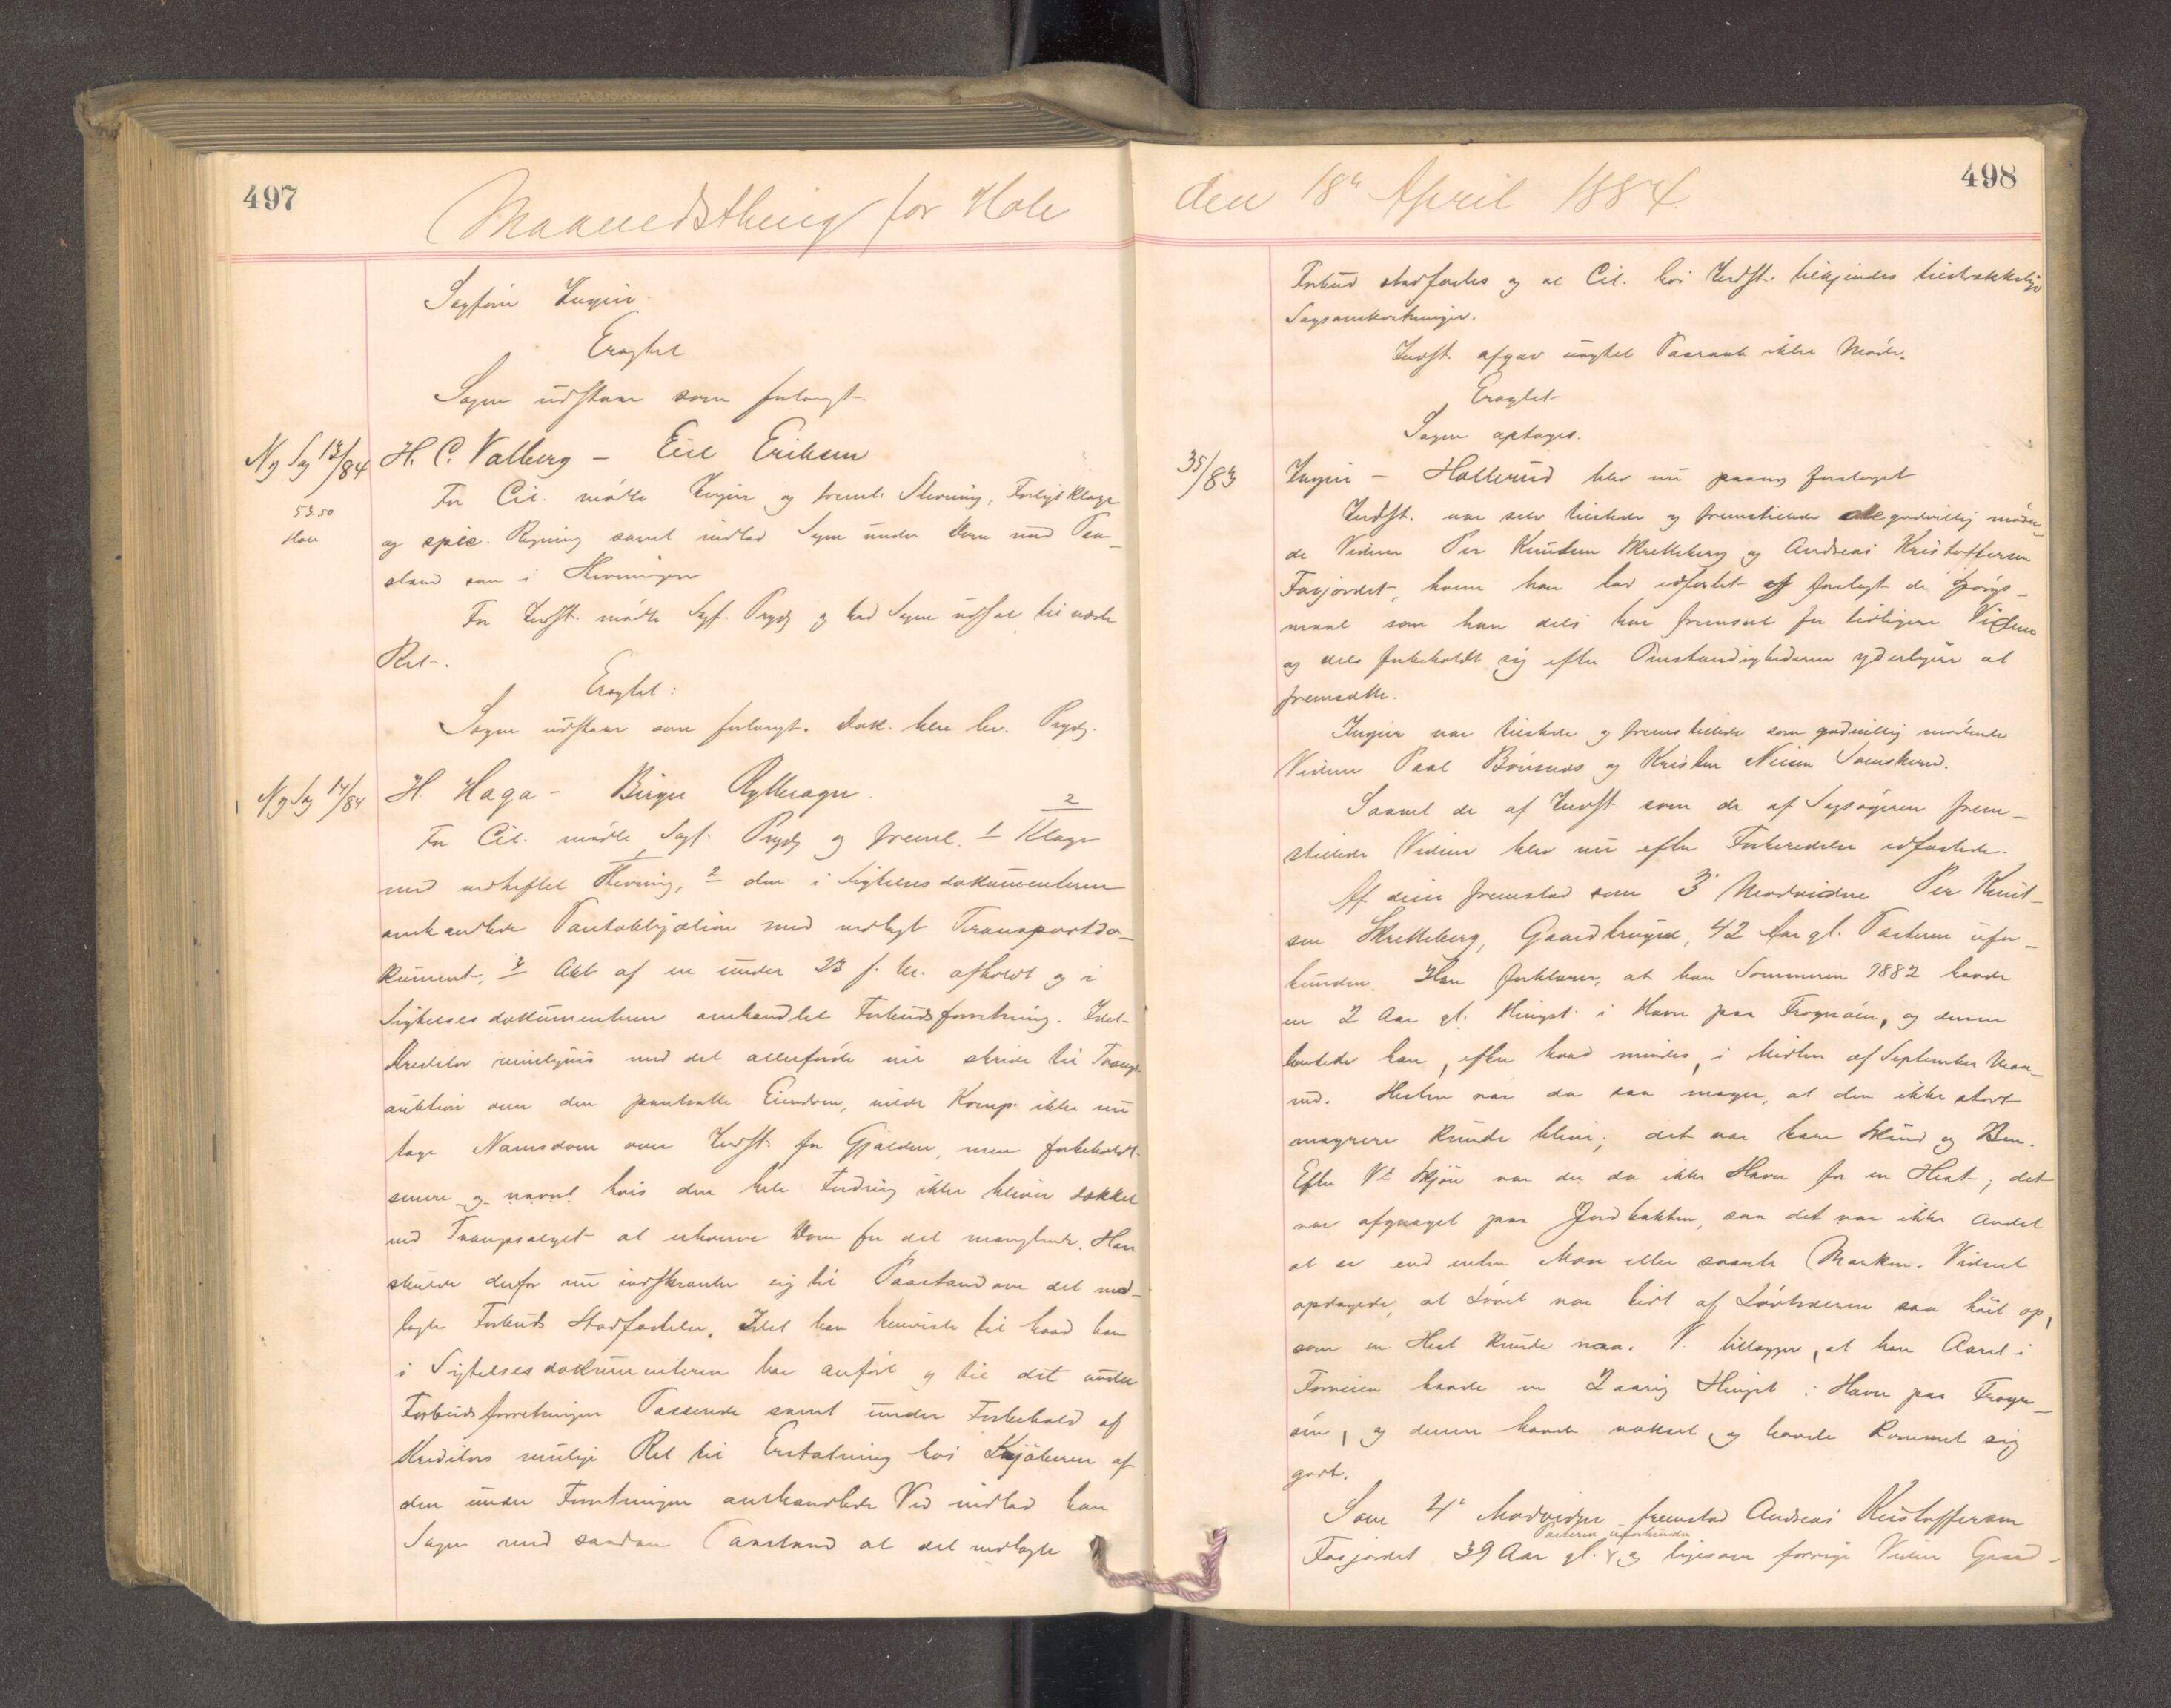 497
Maanedsthing for Hole
Sagfører Ingier.
Eragtet
Sagen udstaar som forlangt.
Ny Sag 13/84
H. C. Valberg – Emil Eriksen
53.50
Hole
For Cit. mødte Ingier og freml. Stevning, Forligsklage
og spec. Regning samt indlod Sagen under Dom med Paa-
stand som i Stevningen
For Indst. mødte Sagf. Prydz og bad Sagen udsat til næste
Ret.
Eragtet:
Sagen udstaar som forlangt. Dok. blev lev. Prydz.
Ny Sag 14/84
H. Haga – Birger Rytterager.
For Cit. mødte Sagf. Prydz og freml. 1 Klage
med vedheftet Stevning, 2 den i Sigtelsesdokumenterne
omhandlede Pantobligation med vedlagt Transportdo-
kument, 3 Akt af en under 23 f. M. afholdt og i
Sigtelsesdokumenterne omhandlet Forbudsforretning. Idet
Kreditor muligens med det allerførste vil skride til Tvangs-
auktion over den pantsatte Eiendom, vilde Komp. ikke nu
tage Namsdom over Indst. for Gjælden, men forbeholdt
senere og navnl. hvis den hele Fordring ikke bliver dækket
ved Tvangsalget at erhverve Dom for det manglende. Han
skulde derfor nu indskrænke sig til Paastand om det ned-
lagte Forbuds Stadfæstelse. Idet han henviste til hvad han
i Sigtelsesdokumenterne har anført og til det under
Forbudsforretningen Passerede samt under Forbehold af
Kreditors mulige Ret til Erstatning hos Kjøberen af
den under Forretningen omhandlede Ved indlod han
Sagen med saadan Paastand at det nedlagte
498
den 18de April 1884.
Forbud stadfæstes og at Cit. hos Indst. tilkjendes tilstrækkelige
Sagsomkostninger.
Indst. afgav uagtet Paaraab ikke Møde.
Eragtet
Sagen optages.
35/83
Ingier – Hollerud blev nu paany foretaget
Indst. var selv tilstede og fremstillede de godvillig møden-
de Vidner Per Knutsen Skretteberg og Andreas Kristoffersen
Fosjordet, hvem han lod edfæstet forelagt de Spørgs-
maal som han dels har fremsat for tidligere Vidner
og dels forbeholdt sig efter Omstændighederne yderligere at
fremsætte.
Ingier var tilstede og fremstillede som godvillig mødende
Vidner Paal Bønsnæs og Kristen Svensrud.
Samtl de af Indst. som de af Sagsøgeren frem-
stillede Vidner blev nu efter Forberedelse edfæstede.
Af disse fremstod som 3' Modvidne Per Knut-
sen Skretteberg, Gaardbruger, 42 Aar gl. Parterne ufor-
bunden. Han forklarer, at han Sommeren 1882 havde
en 2 Aar gl. Hingst i Havn paa Frognøen, og denne
hentede han, efter hvad mindes, i Midten af September Maa-
ned. Hesten var da saa mager, at den ikke stort
magrere kunde blive; det var bare Skind og Ben.
Efter Vt Skjøn var der da ikke Havn for en Hest; det
var afgnaget paa Jordbakken, saa det var ikke andet
at se end enten Mose eller svarte Marken. Vidnet
opdagede, at Løvet var bidt af Løvtræerne saa høit op,
som en Hest kunde naa. V. tillægger, at han Aaret i
Forveien havde en 2 aarig Hingst i Havn paa Frogn-
øen, og denne havde vokset og havde kommet sig
godt.
Som 4' Modvidne fremstod Andreas Kristoffersen
Parterne uforbunden
Fosjordet 39 Aar gl. og ligesom forrige Vidne Gaard-